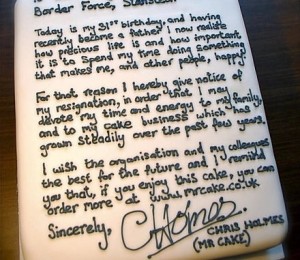 Border Force, Stansted.
Today is my 31st birthday, and having
recently become a father I now realise
how precious life is and how important
it is to spend my time doing something
that makes me, and other people, happy.
For that reason I hereby give notice of
my resignation, in order that I may
devote my time and energy to my family,
and to my cake business which has
grown steadily over the past few years.
I wish the organisation and my colleagues
the best for the future and I remind
you that, if you enjoy this cake, you can
order more at www.mrcake.co.uk
Sincerely,
CHolmes
CHRIS HOLMES
(MR CAKE)